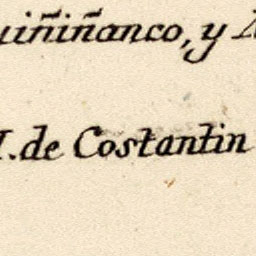 uiñiñanco, y
I. de Costantin